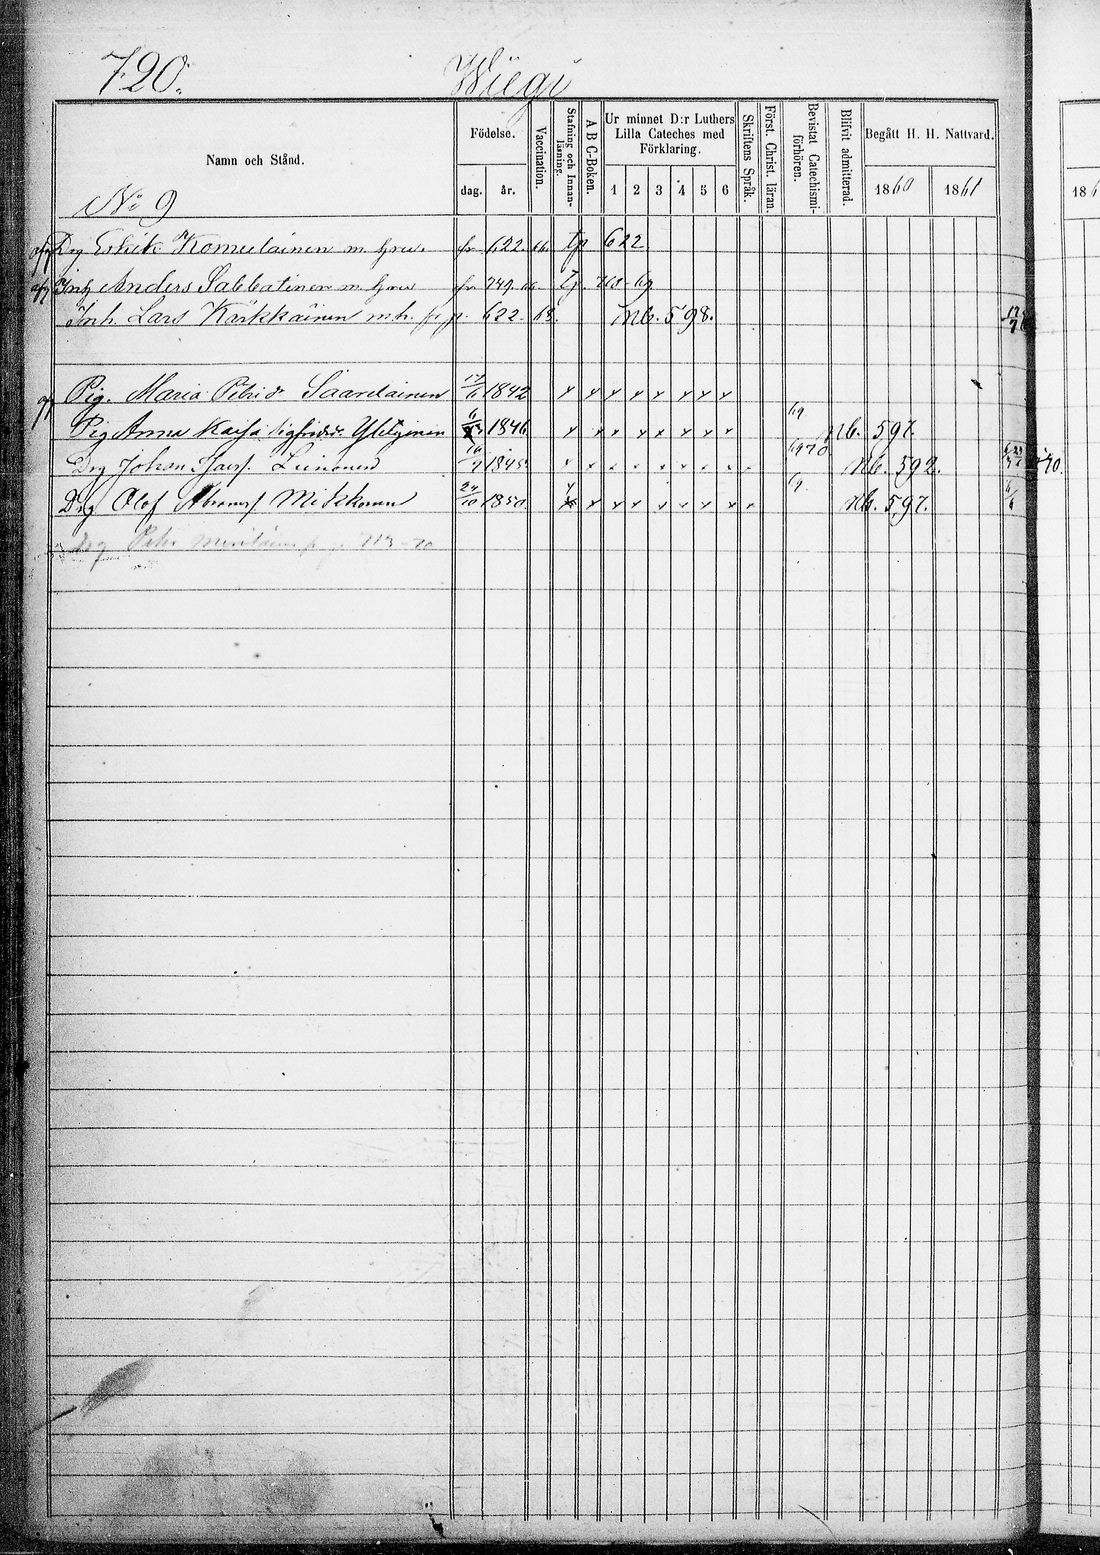 720.
Wiegi
Namn och Stånd.
Födelse.
dag. år.
Vaccination.
Stafning och Innanläsning.
A B C-Boken.
Ur minnet D:r Luthers Lilla Cateches med Förklaring.
1 2 3 4 5 6
Skriftens Språk.
Först. Christ. läran.
Bevistat Catechismiförhören.
Blifvit admitterad.
Begått H. H. Nattvard.
1860 1861
186
No 9
Drg Erkik Komulainen m. hru. fr. 622. 66. tp 622.
Inh Anders Sabbatinen m. hru fr. 749. 66 710-69
Inh. Lars Kärkkäinen m.h. fr p. 622. 68. inb. 598. 12/7
Pig. Maria Petrid. Saarelainen 17/6 1842 x x x x x x x x
Pig Anna Kaisa Sigfridsdr. 1846 x x x x x x x x 69 nb. 597.
Drg Johan Leinonen 1845 x x x x x x x x 69 70 nb. 592. 70.
Drg Olof Abramsf Mikkonen 24/10 1850 x x x x x x x x nb. 597. 6/6
Drg Petter p. 713-70